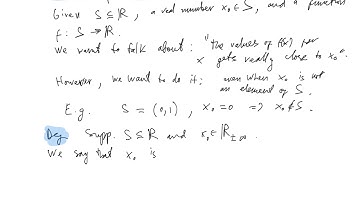 Given S ⊆ ℝ, a real number x₀ ∈ S, and a function
f: S → ℝ.
We want to talk about: "the values of f(x) for
x gets really close to x₀".
However, we want to do it: even when x₀ is not
an element of S.
E.g. S = (0,1), x₀ = 0 ⇒ x₀ ∉ S.
Def Supp. S ⊆ ℝ and x₀ ∈ ℝ±∞.
We say that x₀ is